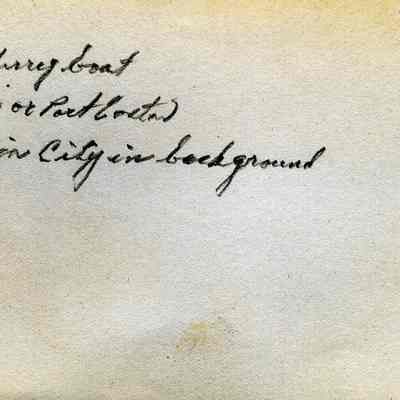 Ferry boat
or Port Costa
City in background